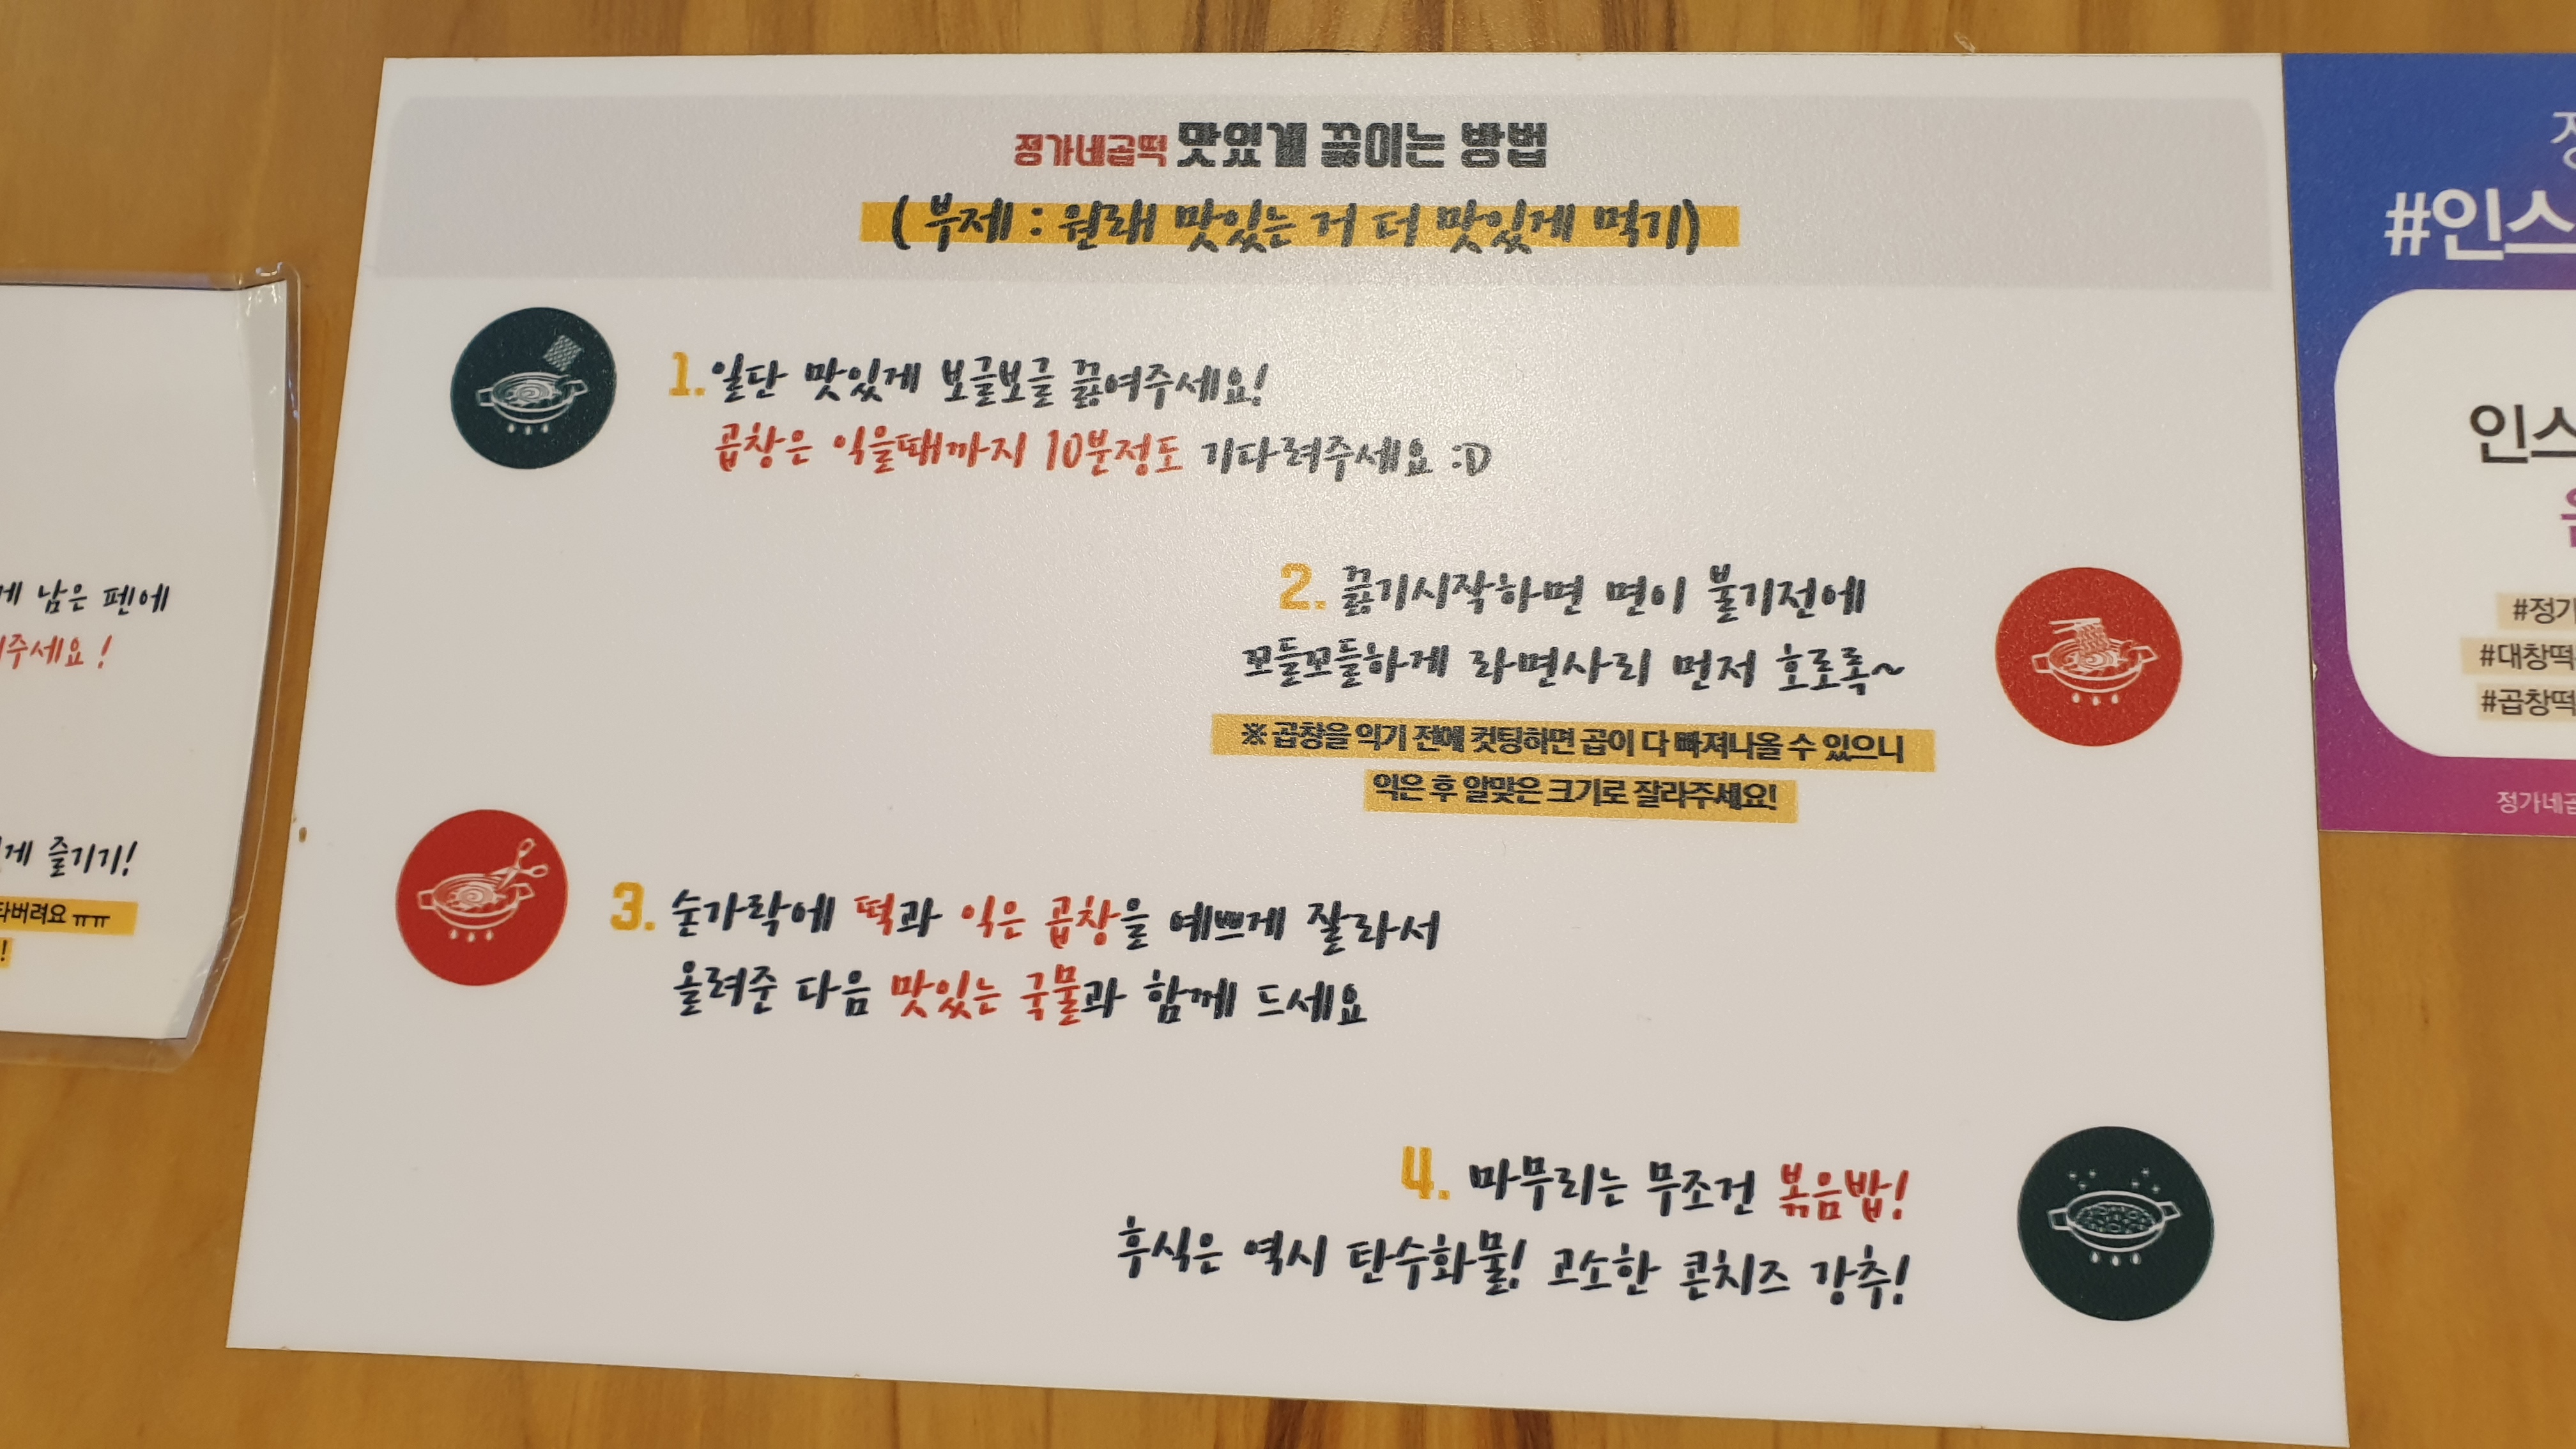 정가네곱떡 맛있게 끓이는 방법
( 부제 : 원래 맛있는 거 더 맛있게 먹기)
1. 일단 맛있게 보글보글 끓여주세요!
곱창은 익을때까지 10분정도 기다려주세요 :D
2. 끓기시작하면 면이 불기전에
꼬들꼬들하게 라면사리 먼저 호로록~
※ 곱창을 익기 전에 컷팅하면 곱이 다 빠져나올 수 있으니
익은 후 알맞은 크기로 잘라주세요!
3. 숟가락에 떡과 익은 곱창을 예쁘게 잘라서
올려준 다음 맛있는 국물과 함께 드세요
4. 마무리는 무조건 볶음밥!
후식은 역시 탄수화물! 고소한 콘치즈 강추!
게 남은 펜에
주세요 !
게 즐기기!
타버려요 ㅠㅠ
!
#인스
인스
#정가
#대창떡
#곱창떡
정가네곱